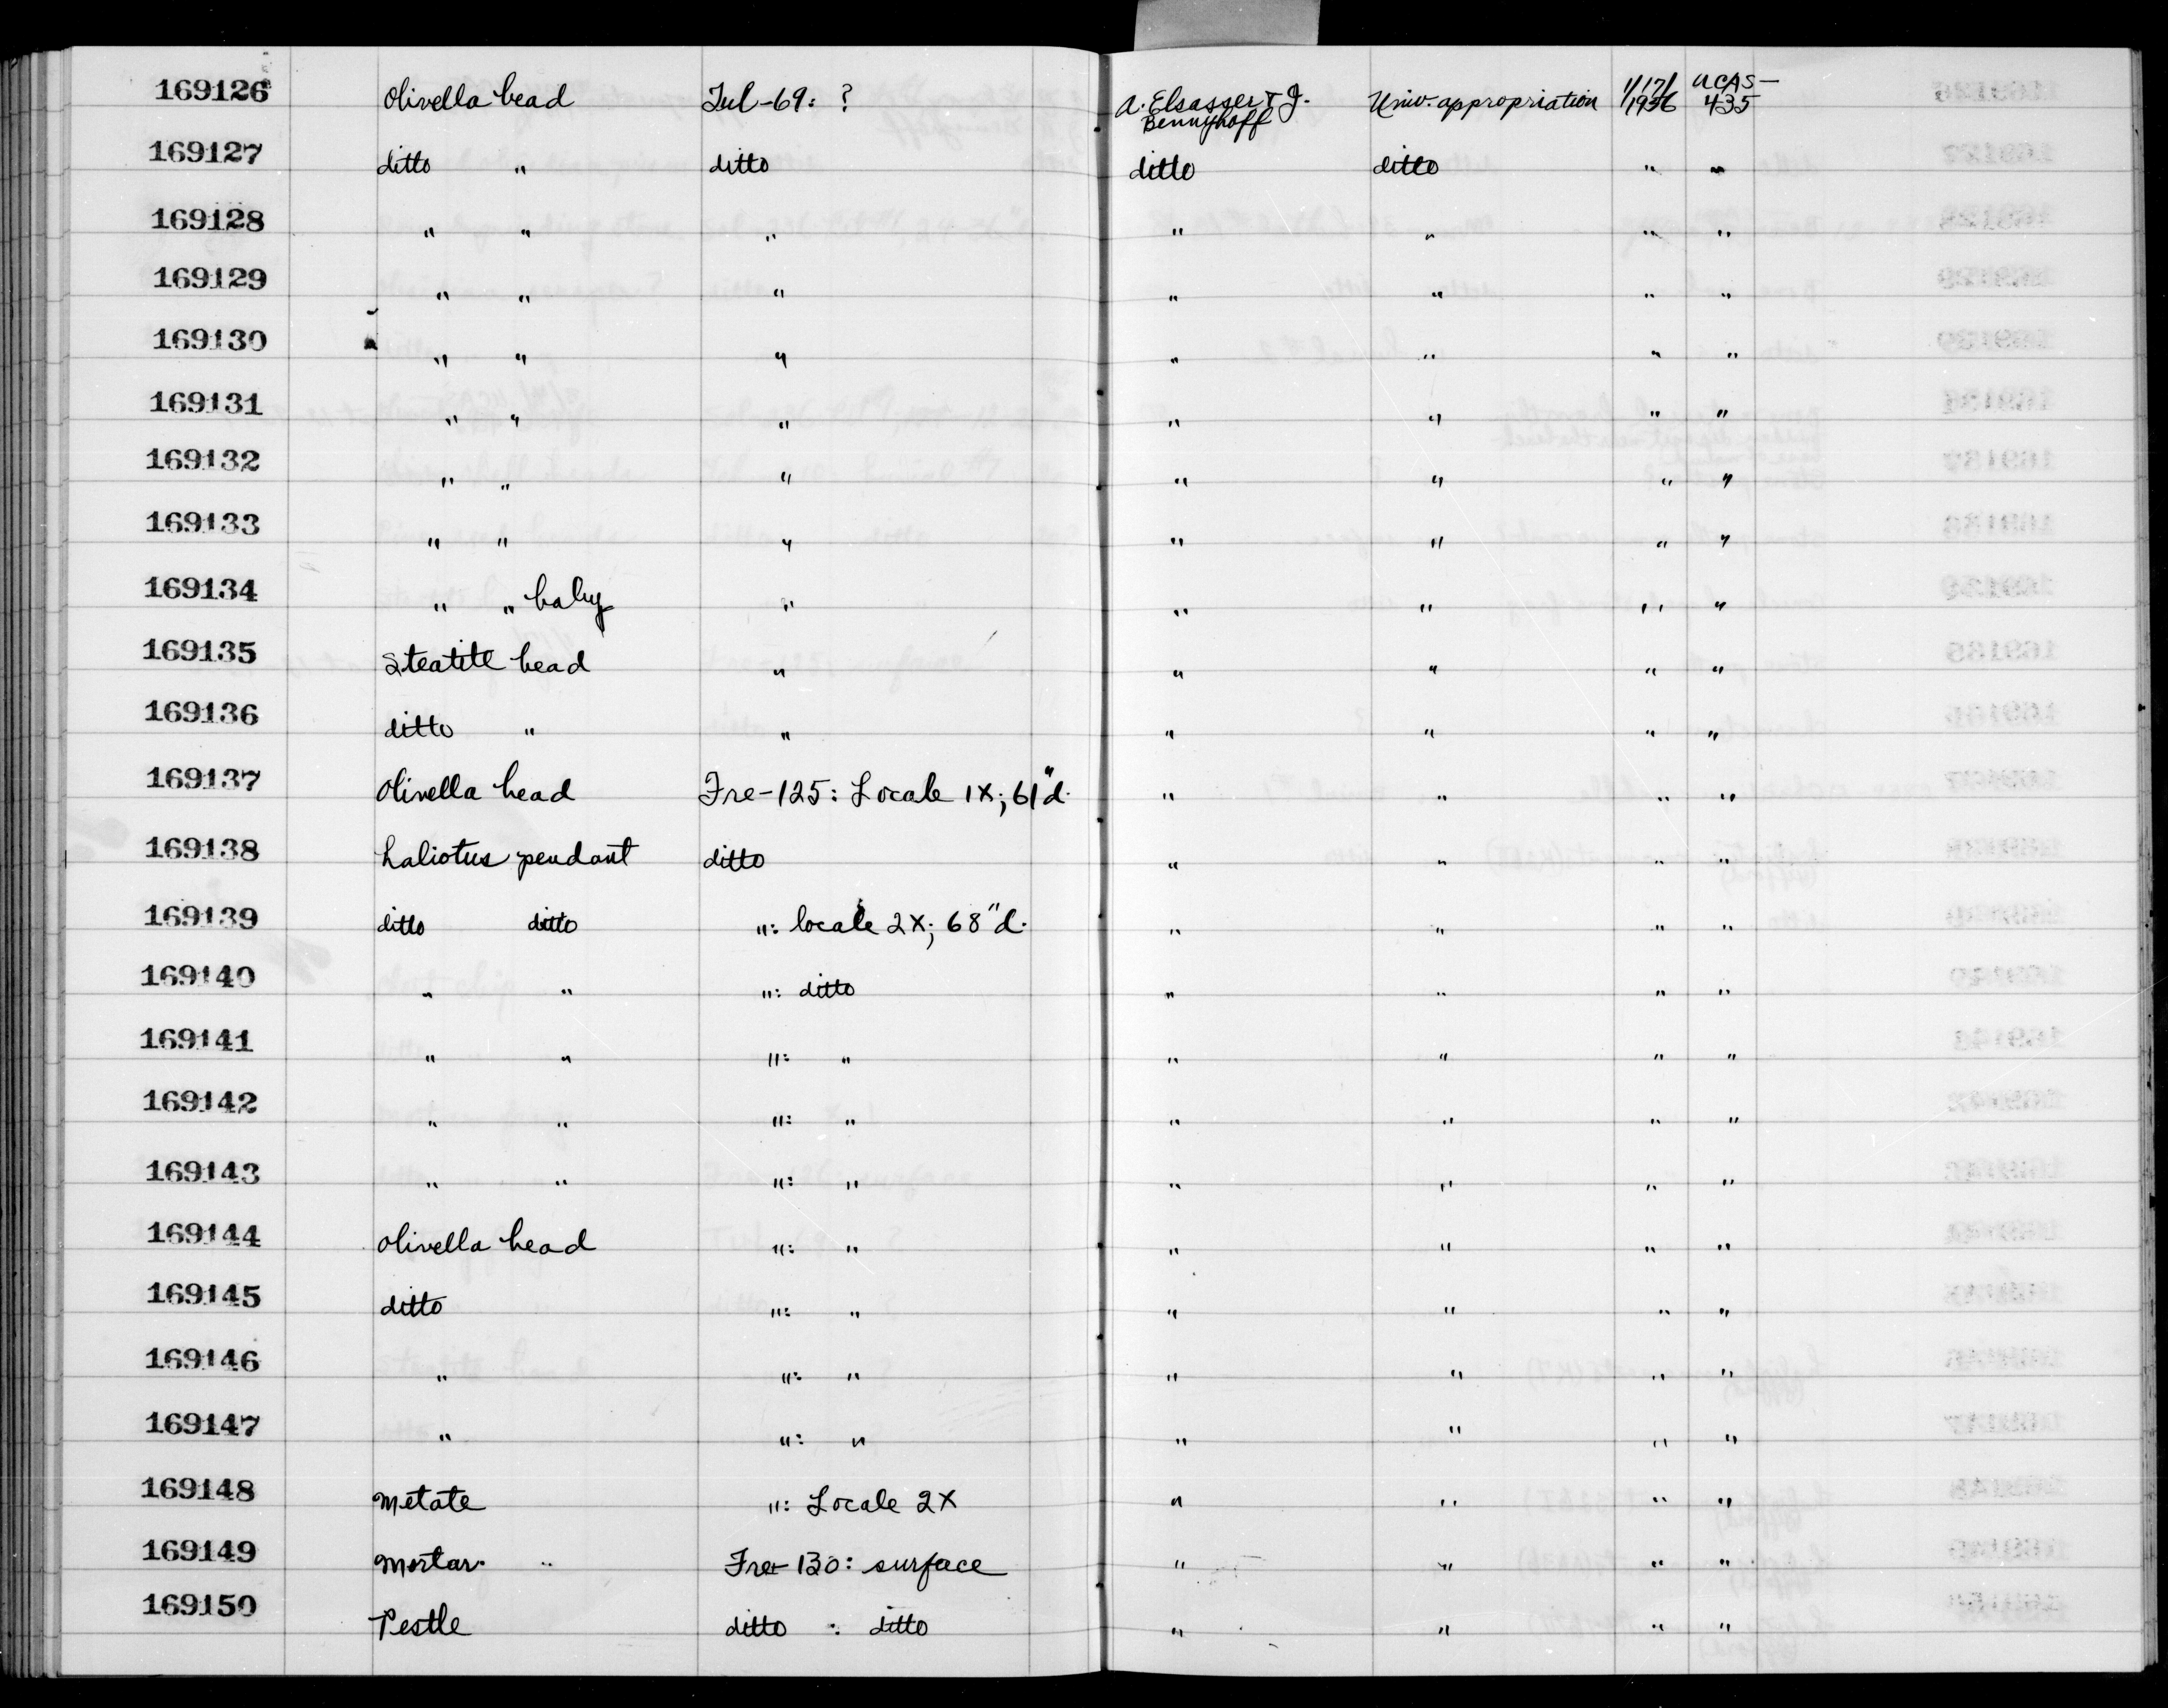 169126 Olivella bead Tul-69: ? A. Elsasser & J. Bennyhoff Univ. appropriation 1/17/1956 UCAS-435
169127 ditto " ditto ditto ditto " "
169128 " " " " " " "
169129 " " " " " " "
169130 " " " " " " "
169131 " " " " " " "
169132 " " " " " " "
169133 " " " " " " "
169134 " " baby " " " " "
169135 Steatite bead " " " " "
169136 ditto " " " " " "
169137 Olivella bead Fre-125: Locale 1X; 61"d. " " " "
169138 haliotus pendant ditto " " " "
169139 ditto ditto ": locale 2X; 68"d. " " " "
169140 " " ": ditto " " " "
169141 " " ": " " " " "
169142 " " ": " " " " "
169143 " " ": " " " " "
169144 Olivella bead ": " " " " "
169145 ditto ": " " " " "
169146 " ": " " " " "
169147 " ": " " " " "
169148 Metate ": Locale 2X " " " "
169149 Mortar Fre-130: surface " " " "
169150 Pestle ditto : ditto " " " "